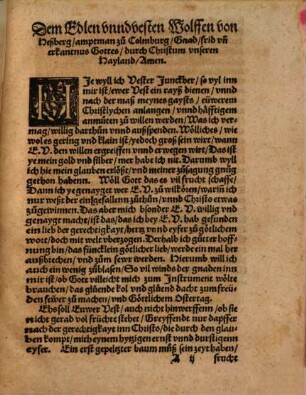 Dem Edlen vnndvesten Wolffen von
Heßberg/amptman zů Colmburg/Gnad/frid vñ
erkantnus Gottes/durch Christum vnseren
Hayland/Amen.
Je wyll ich Vester Junckher/so vyl inn
mir ist/ewer Vest ein rayß dienen/vnnd
nach der maß meynes gaysts/eüwerem
Christlychen anlangen/vnnd häfftigem
anmůten zů willen werden/Was ich ver-
mag/willig darthůn vnnd außspenden. Wöllliches/wie
wol es gering vnd klain ist/yedoch groß sein wirt/wann
E.V. den willen ergreiffen vnnd erwegen wirt/Das ist
ye mein gold vnd silber/mer hab ich nit. Darumb wyll
ich hie mein glauben erlöße/vnd meiner zůsagung gnůg
gethon haben. Wöll Gott das es vil frucht schaffe/
Dann ich ye genayget wer E.V. zů wilfören/warin ich
nur west der eingefallenn zůthůn/vnnd Christo etwas
zůgewinnen. Das aber mich bsonder E.V. willig vnd
genaygt macht/ist das/das ich bey E.V. hab gefunden
ein lieb der gerechtigkayt/herg vnd eyfer zů götlichem
wort/doch mit welt vberzogen. Derhalb ich gůter hoff-
nung bin/das füncklein götlicher lieb/werde ein mal her
außbrechen/vnd zům fewr werden. Hierumb will ich
auch ein wenig zůblasen/So vil winds der gnaden inn
mir ist/ob Gott velleicht mich zům Jnstrument wölte
brauchen/das glüende kol vnd glůend dacht zům freüdi-
den feüwer zů machen/vnd Göttlichem Ostertag.
Ehsoll/Euwer Vest/auch nicht hinwerffenn/ob sie
nicht gerad vol früchtstehet/Greyffendt nur dapffer
nach der gerechtigkayt inn Christo/die durch den glau-
ben kompt/mit heynem hyzigen ernst vnd durstigenn
eyfer. Ein erst gepelzter baum můß sein zeyt haben/
A ij frucht